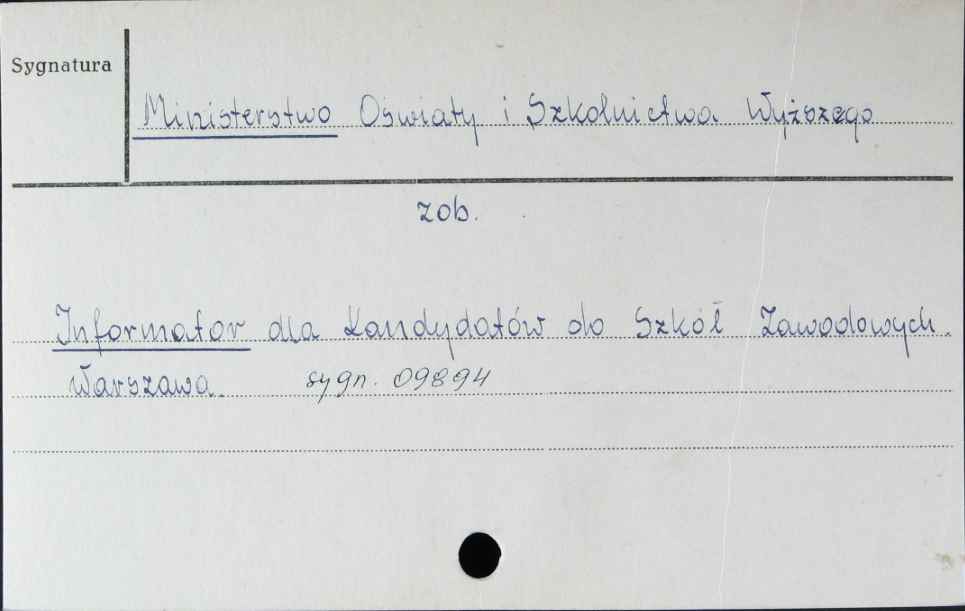 Sygnatura
Ministerstwo Oświaty i Szkolnictwa Wyższego
zob.
Informator dla Kandydatów do Szkół Zawodowych.
Warszawa. sygn. 09894